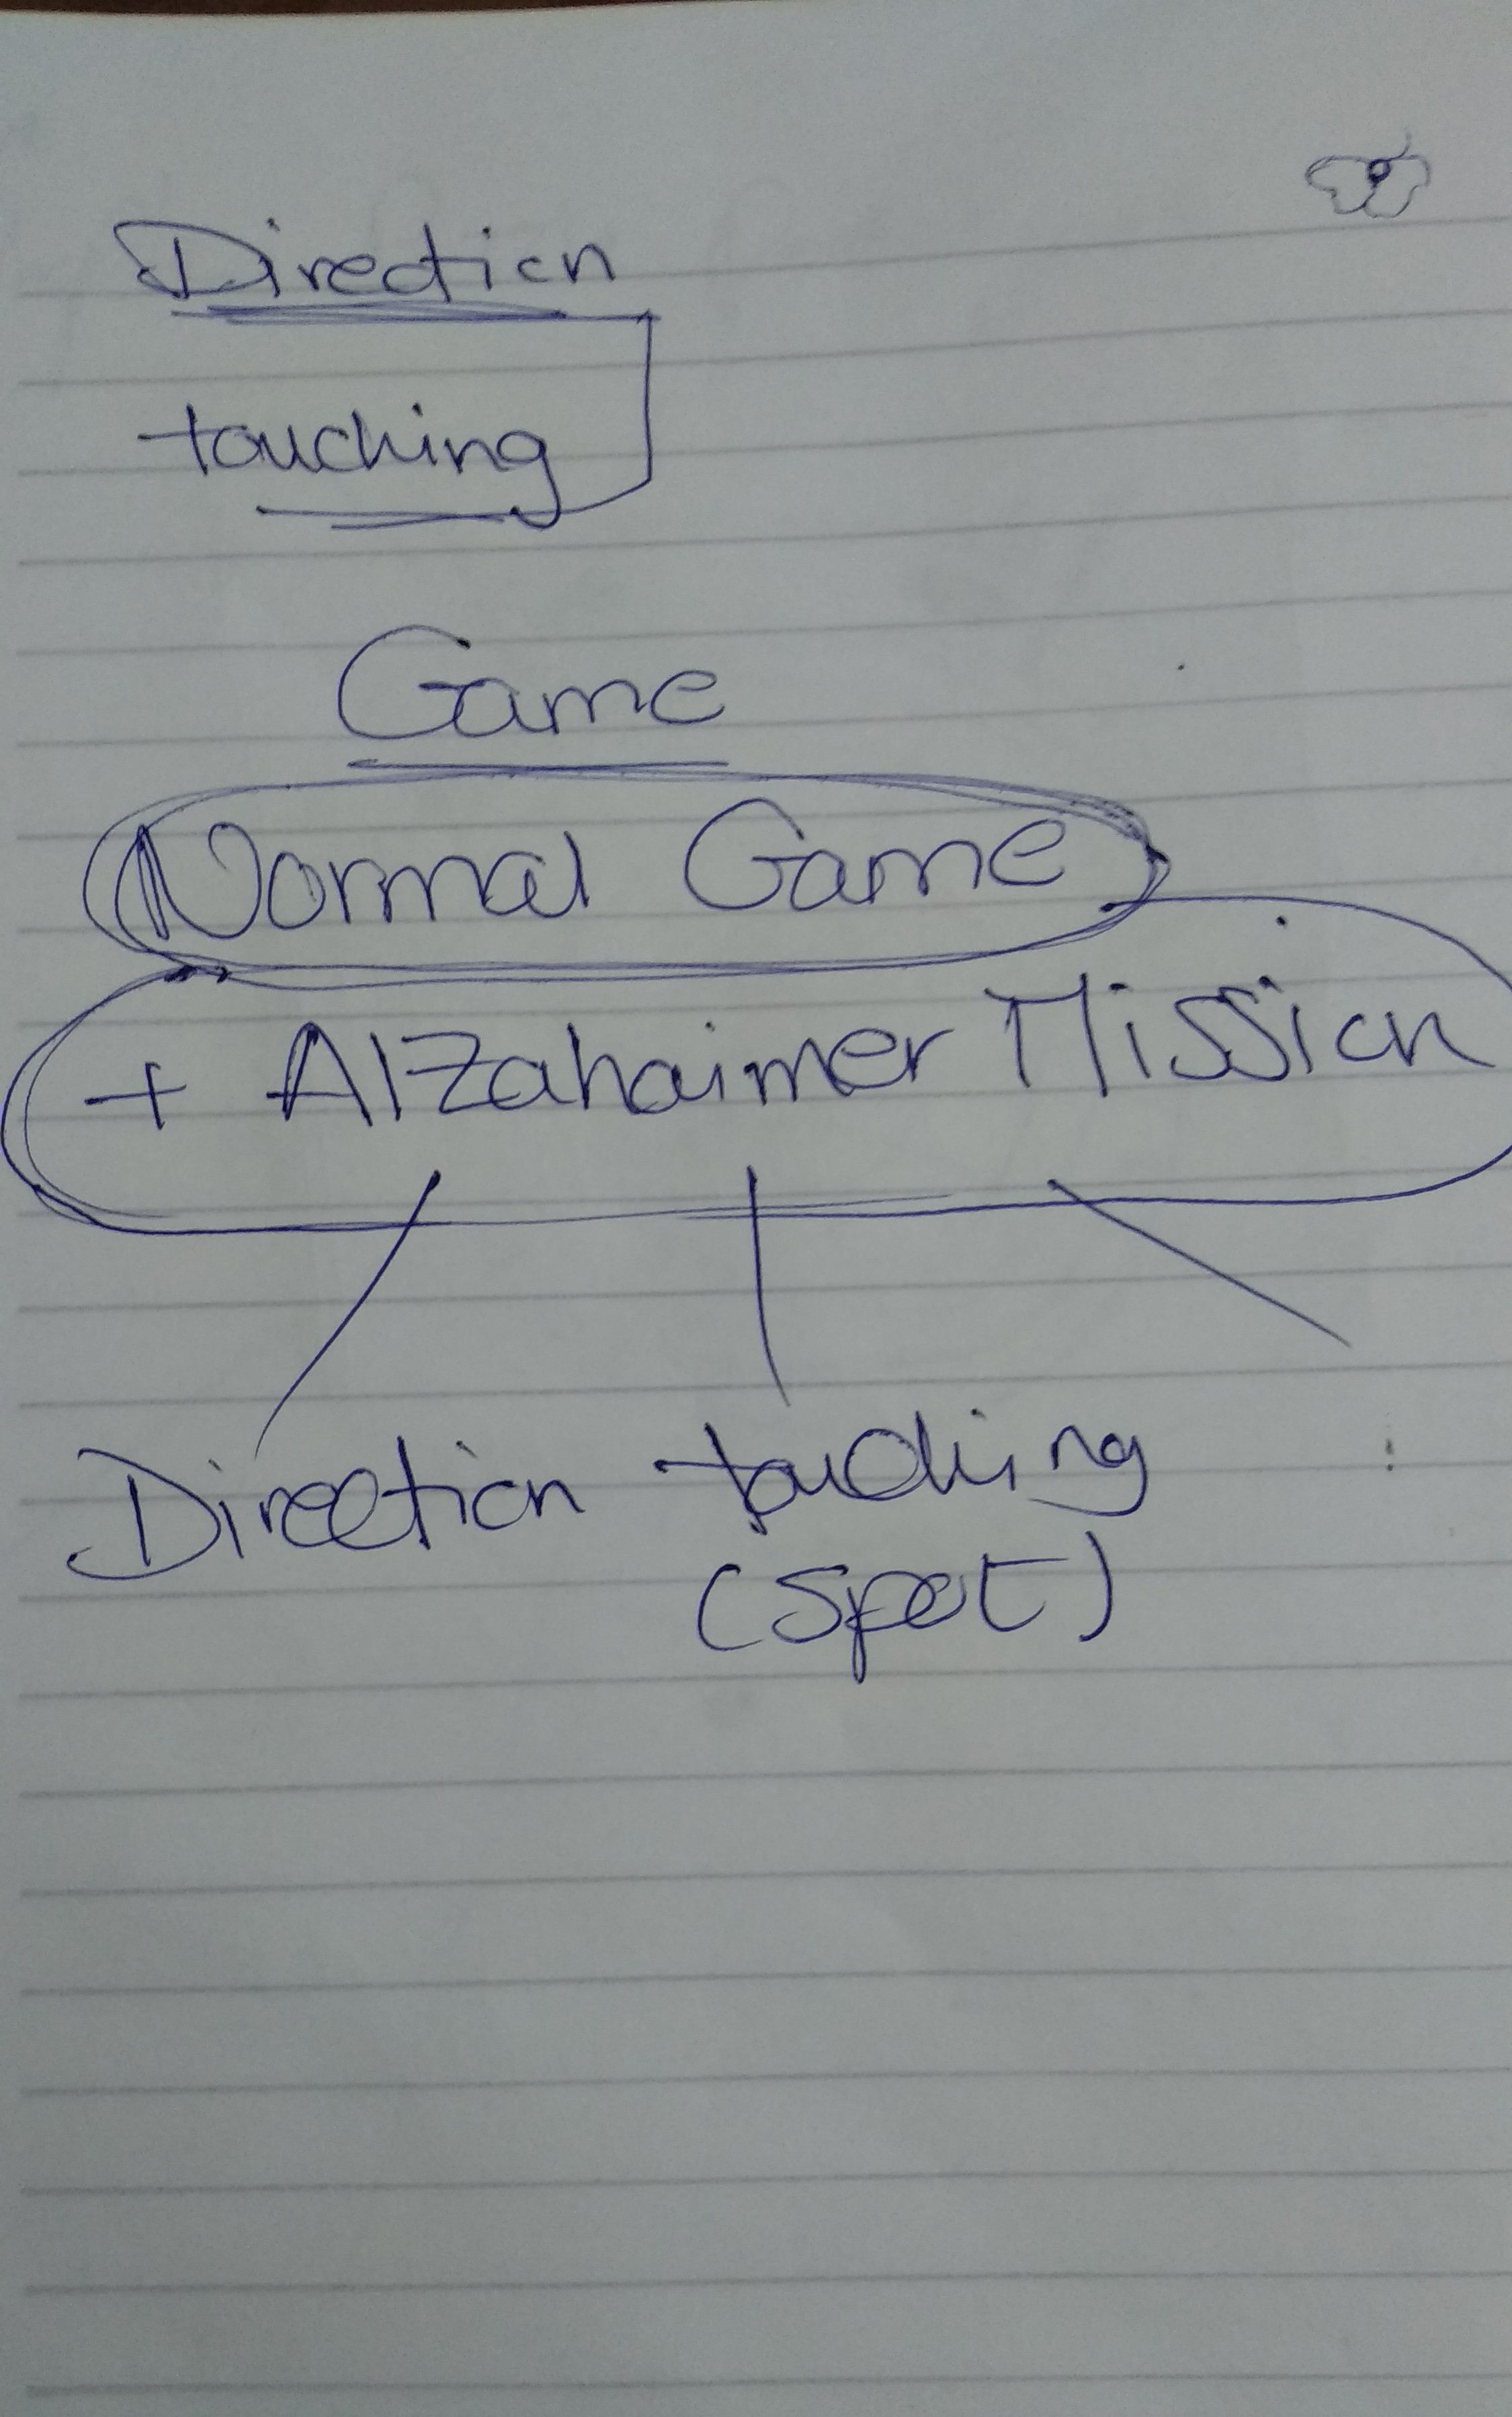 Direction
touching
Game
Normal Game
+ Alzahaimer Mission
Direction touching
(Spot)